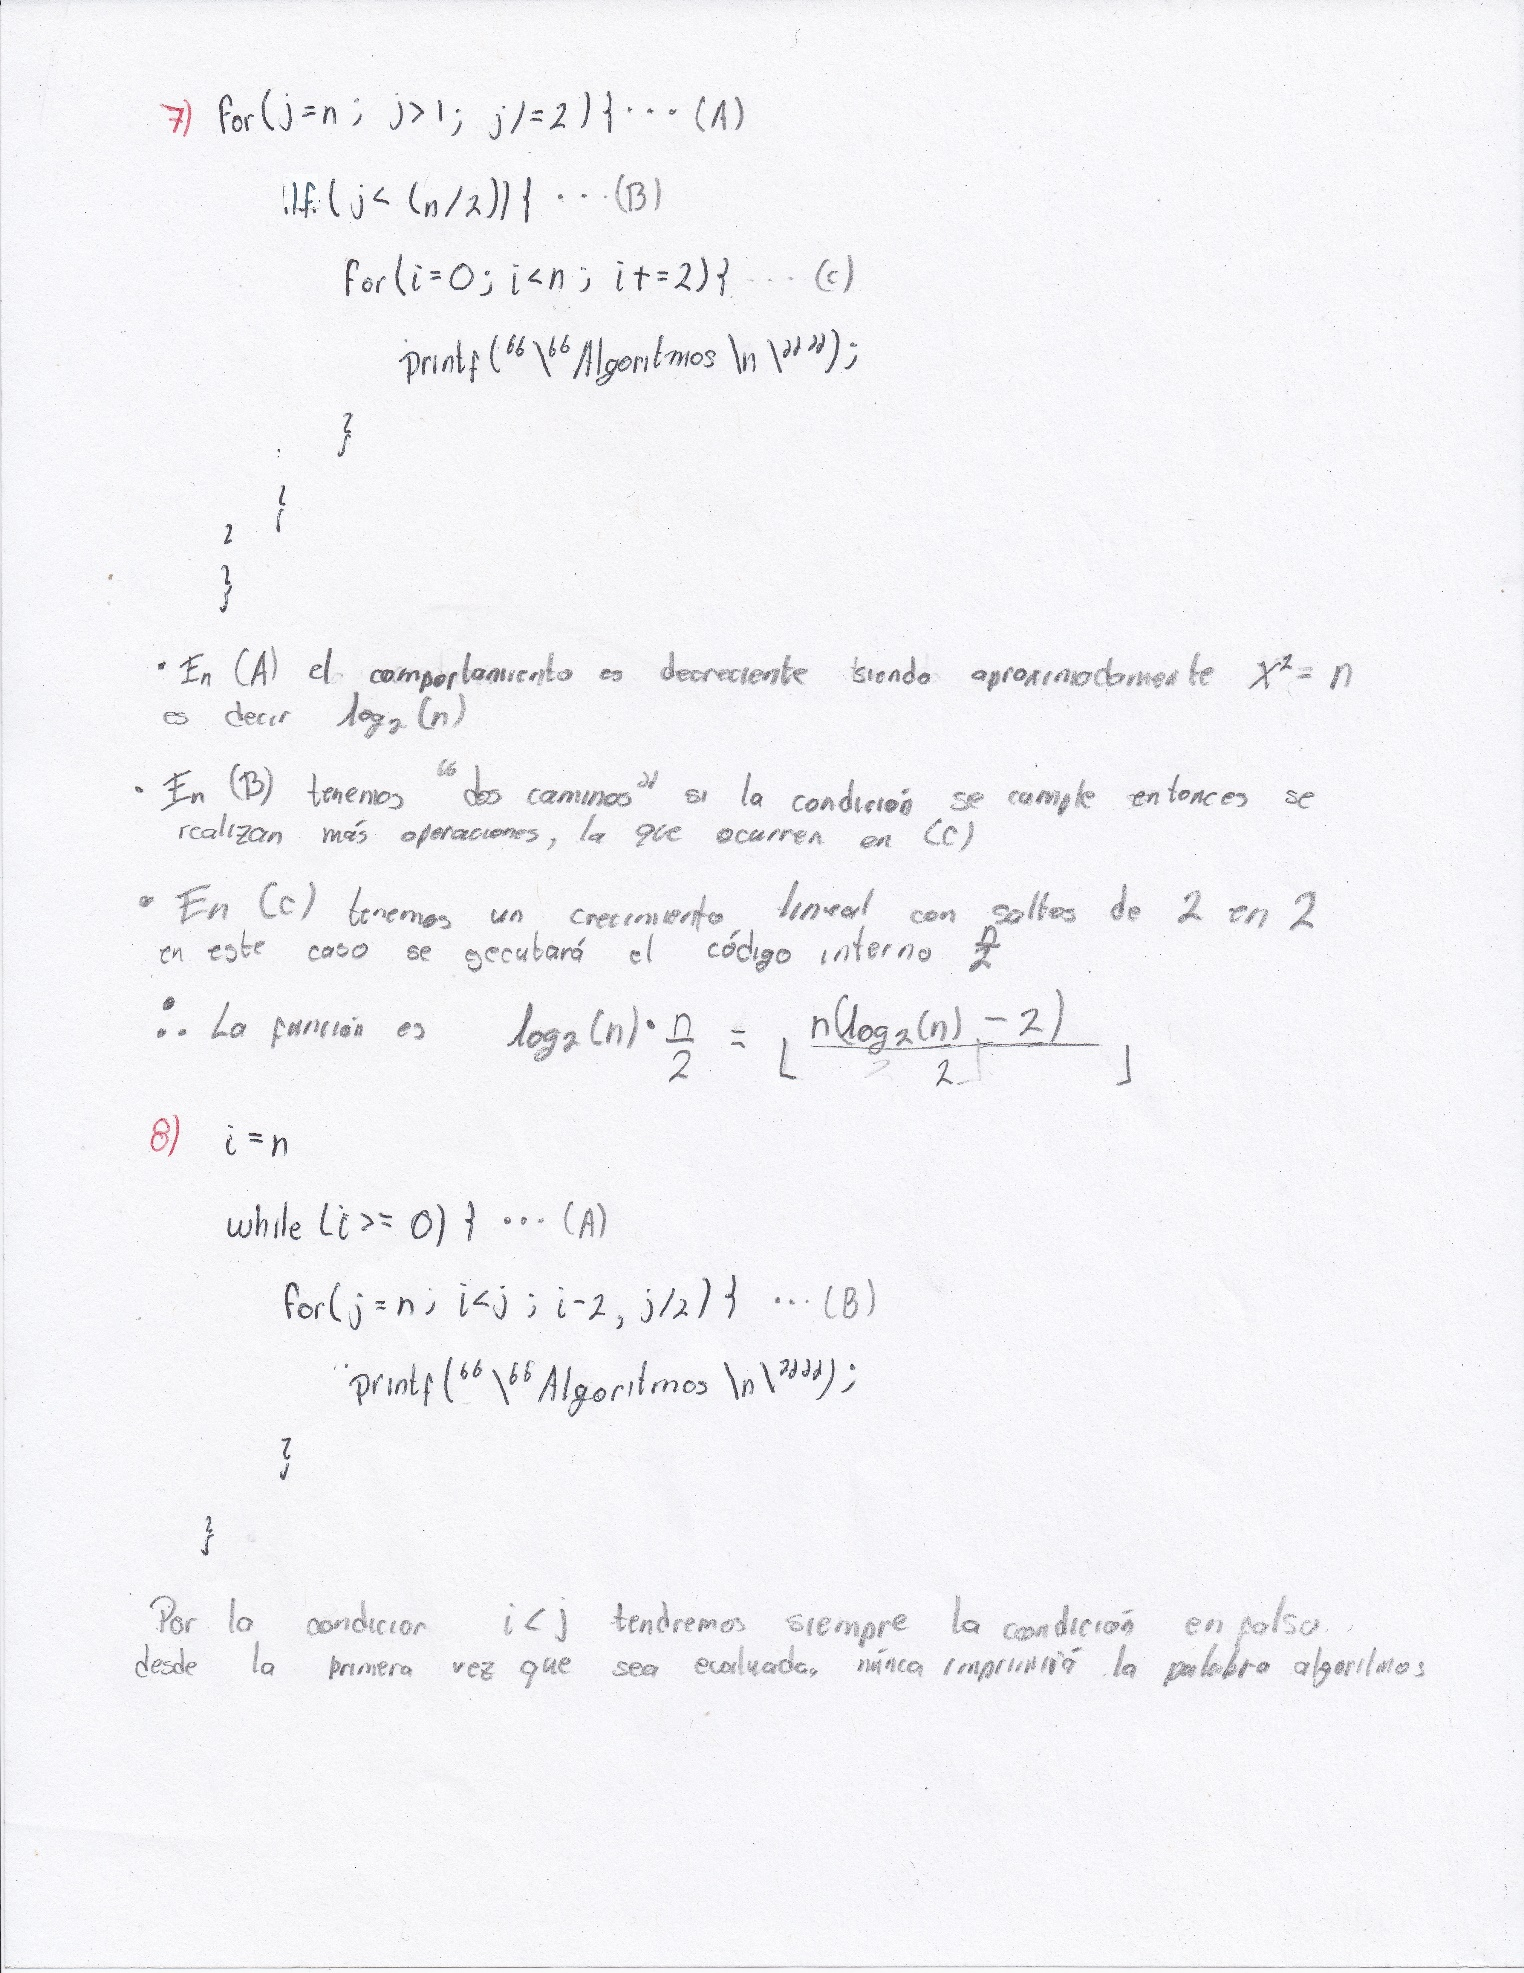 7) for(j=n; j>1; j/=2){ ... (A)
if(j< (n/2)){ ... (B)
for(i=0; i<n; i+=2){ ... (C)
printf("\"Algoritmos \n \"");
}
}
}
• En (A) el comportamiento es decreciente siendo aproximadamente X² = n
es decir log₂(n)
• En (B) tenemos "dos caminos" si la condición se cumple entonces se
realizan más operaciones, la que ocurren en (C)
• En (C) tenemos un crecimiento lineal con saltos de 2 en 2
en este caso se ejecutará el código interno n/2
∴ La función es log₂(n) • n/2 = ⌊ n(log₂(n) - 2) / 2 ⌋
8) i=n
while (i>= 0) { ... (A)
for(j=n; i<j; i-2, j/2){ ... (B)
printf("\"Algoritmos \n\"");
}
}
Por la condicion i<j tendremos siempre la condición en falso
desde la primera vez que sea evaluada, núnca imprimirá la palabra algoritmos